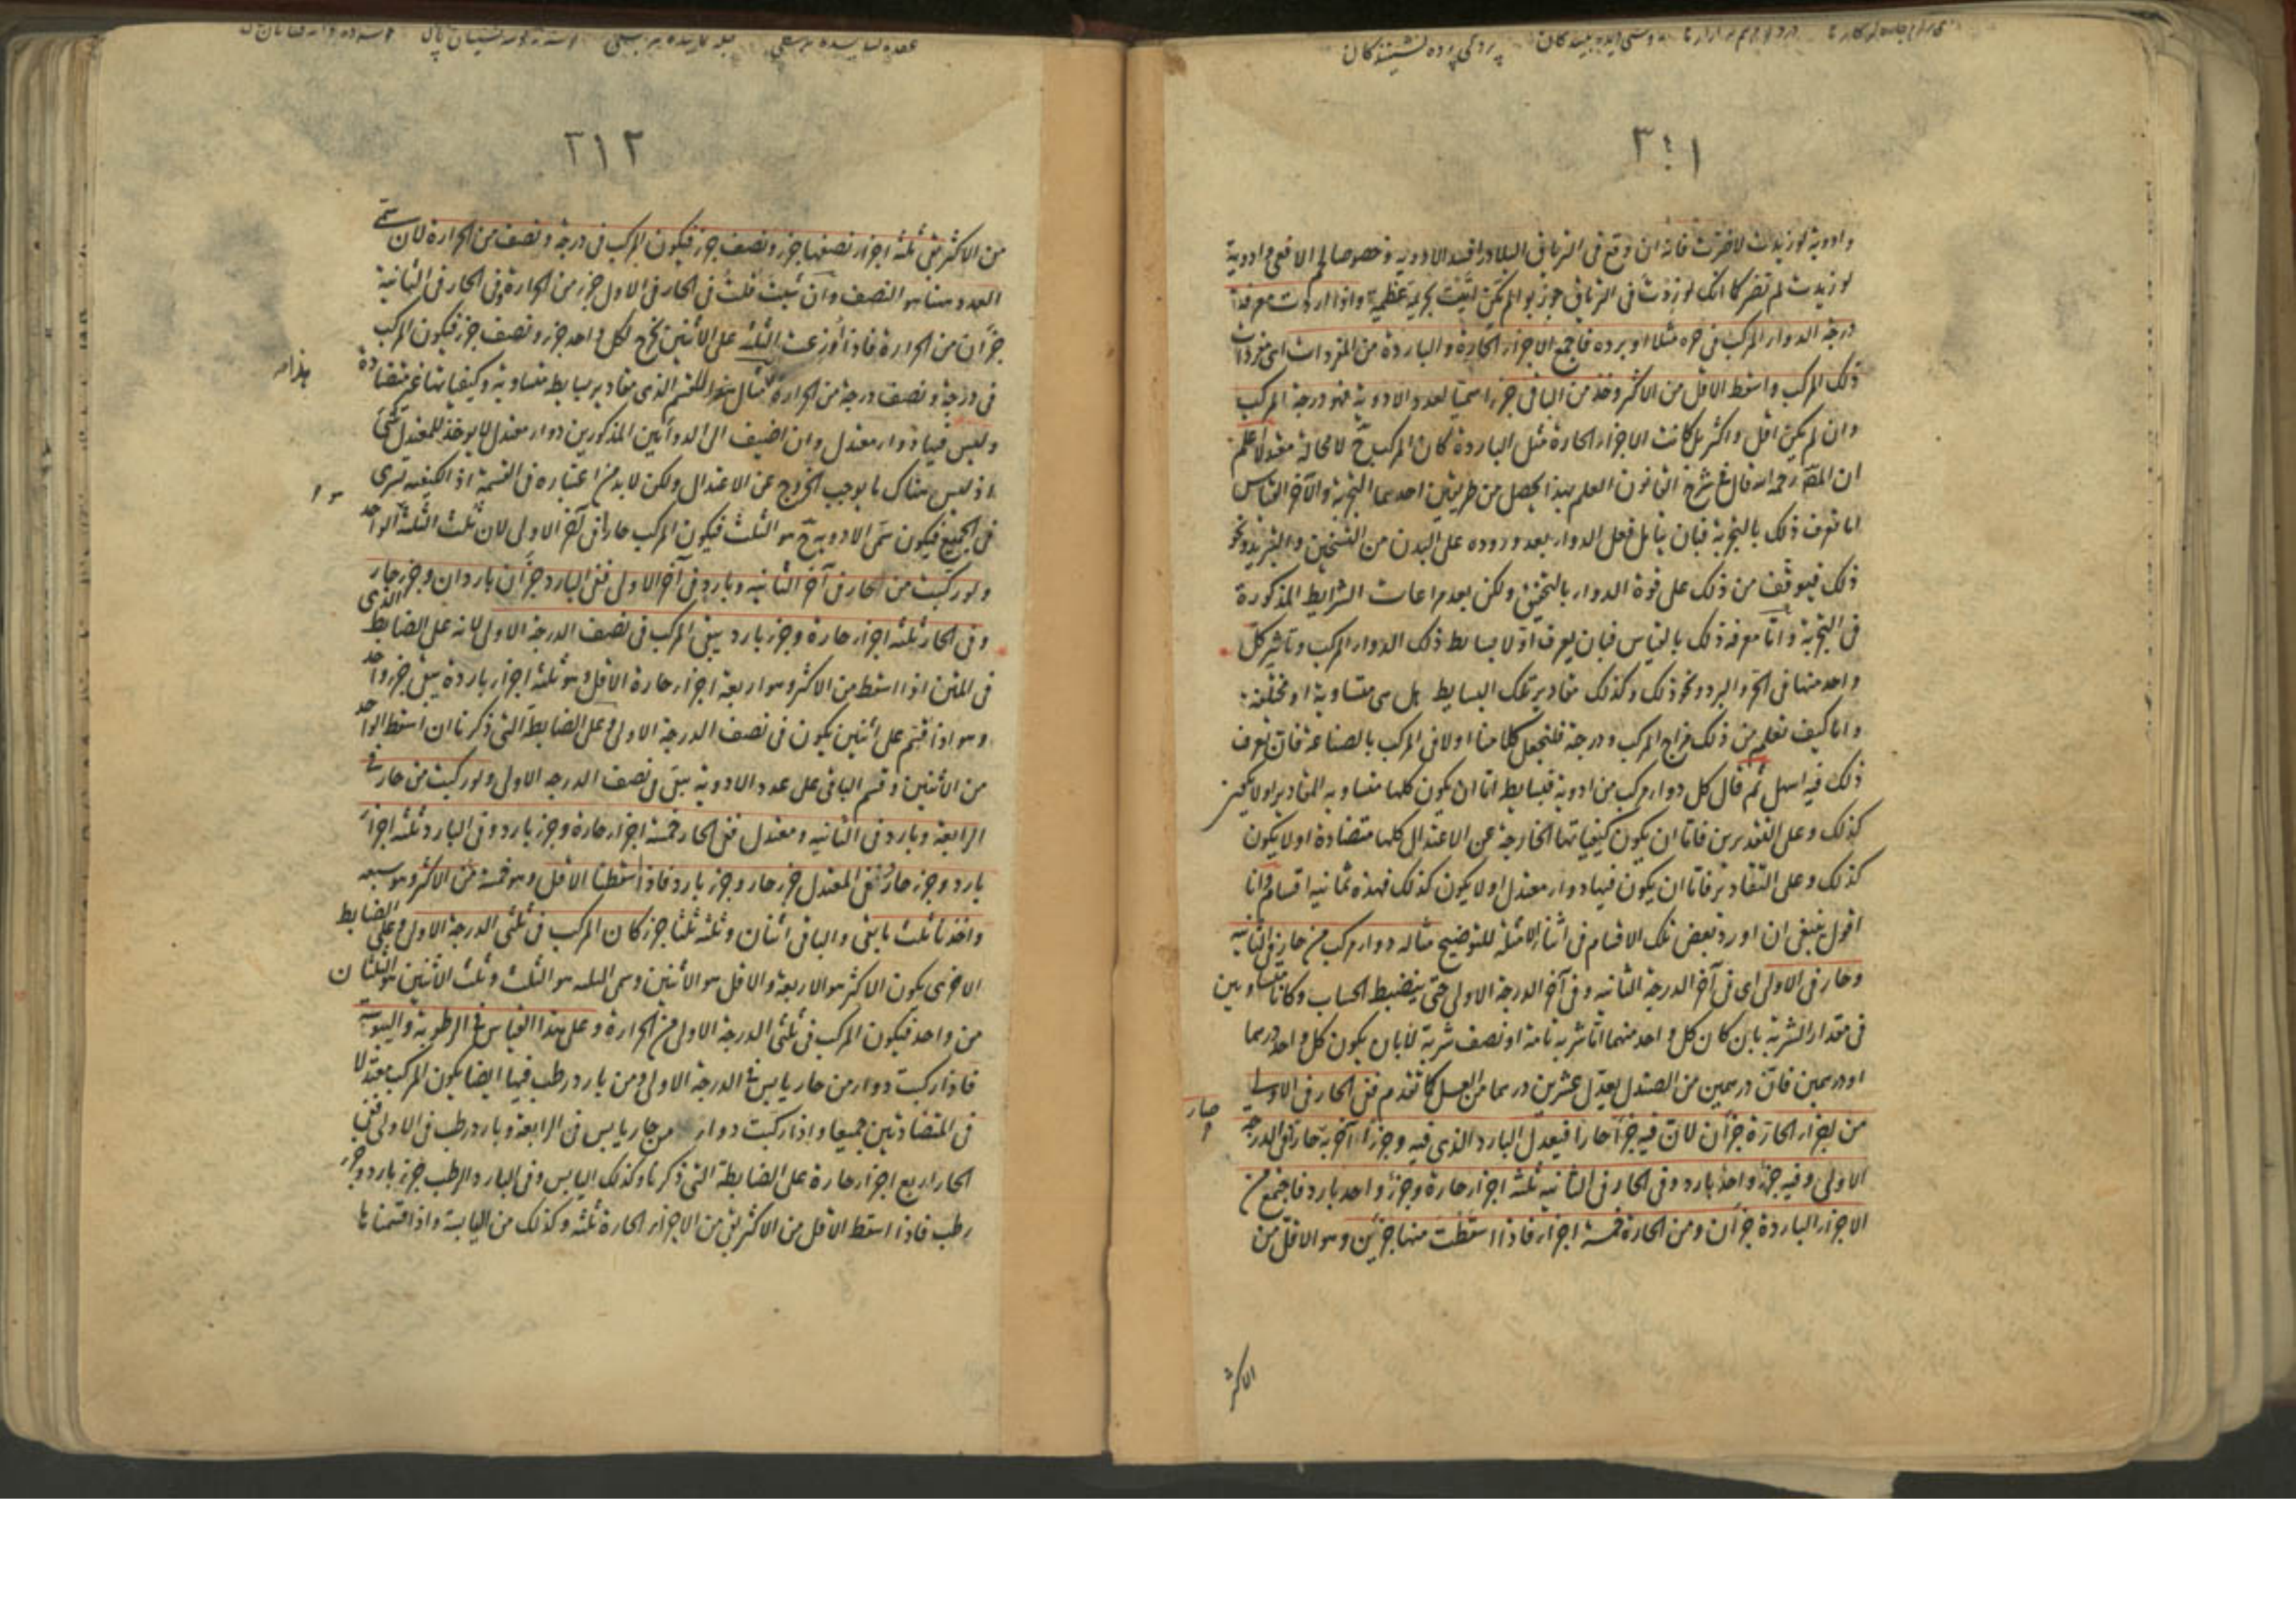 ٣١١
وادوية لو زيدت لاضرت فانه ان وقع فى الترياق البلادر افسد الادوية وخصوصا لحم الافعى وادوية
لو زيدت لم تضر كما انك لو زدت فى الترياق جوز بوا لم يكن اتيت بجريمة عظيمة واذا اردت معرفة
درجة الدواء المركب فى حره مثلا او برده فاجمع الاجزاء الحارة والباردة من المفردات اى مفردات
ذلك المركب واسقط الاقل من الاكثر وخذ من الباقى جزءا سميا لعدد الادوية فهو درجة المركب
وان لم يكن اقل واكثر بل كانت الاجزاء الحارة مثل الباردة كان المركب ح لا محالة معتدلا اعلم
ان المص رحمه الله قال فى شرح القانون العلم بهذا يحصل من طريقين احدهما التجربة والآخر القياس
اما تعرف ذلك بالتجربة فبان يتامل فعل الدواء بعد وروده على البدن من التسخين والتبريد ونحو
ذلك فيوقف من ذلك على قوة الدواء بالتحقيق ولكن بعد مراعات الشرايط المذكورة
فى التجربة واما معرفة ذلك بالقياس فبان يعرف اولا بسايط ذلك الدواء المركب وتاثير كل
واحد منها فى الحر والبرد ونحو ذلك وكذلك مقادير تلك البسايط هل هى متساوية او مختلفة
واما كيف تعلم من ذلك مزاج المركب ودرجته فلنجعل كلامنا اولا فى المركب بالصناعة فان تعرف
ذلك فيه اسهل ثم قال كل دواء مركب من ادوية فبسايطه اما ان يكون كلها متساوية المقادير او لا يكون
كذلك وعلى التقديرين فاما ان يكون كيفياتها الخارجة عن الاعتدال كلها متضادة او لا يكون
كذلك وعلى التقادير فاما ان يكون فيها دواء معتدل او لا يكون كذلك فهذه ثمانية اقسام وانا
اقول ينبغى ان اورد بعض تلك الاقسام فى اثناء الامثلة للتوضيح مثاله دواء مركب من حار فى الثانية
وحار فى الاولى اى فى آخر الدرجة الثانية وفى آخر الدرجة الاولى حتى ينضبط الحساب وكانا متساويين
فى مقدار الشربة بان كان كل واحد منهما اما شربة تامة او نصف شربة لا بان يكون كل واحد درهما
او درهمين فان درهمين من الصندل يعدل عشرين درهما من العسل كما تقدم ففى الحار فى الاولى
من الاجزاء الحارة جزآن لان فيه جزءا حارا فيعدل البارد الذى فيه وجزءا آخر به صار حارا فى الدرجة
الاولى وفيه جزء واحد بارد وفى الحار فى الثانية ثلثة اجزاء حارة وجزء واحد بارد فاجتمع من
الاجزاء الباردة جزآن ومن الحارة خمسة اجزاء فاذا اسقطت منها جزئين وهو الاقل من
الاكثر
٣١٢
من الاكثر بقى ثلثة اجزاء نصفها جزء ونصف جزء فيكون المركب فى درجة ونصف من الحرارة لان سمى
العدد هنا هو النصف وان شئت قلت فى الحار فى الاول جزء من الحرارة وفى الحار فى الثانية
جزآن من الحرارة فاذا وزعت الثلثة على الاثنين يخرج لكل واحد جزء ونصف جزء فيكون المركب
فى درجة ونصف درجة من الحرارة مثال هذا للقسم الذى مقادير بسايطه متساوية وكيفياتها غير متضادة
وليس فيها دواء معتدل وان اضيف الى الدوائين المذكورين دواء معتدل لا يوخذ للمعتدل شئ
اذ ليس هناك ما يوجب الخروج عن الاعتدال ولكن لا بد من اعتباره فى القسمة اذ الكيفية تسرى
فى الجميع فيكون سمى الادوية ح هو الثلث فيكون المركب حارا فى آخر الاولى لان ثلث الثلثة الواحد
ولو ركبت من الحار فى آخر الثانية وبارد فى آخر الاولى ففى البارد جزآن باردان وجزء حار
وفى الحار ثلثة اجزاء حارة وجزء بارد يبقى المركب فى نصف الدرجة الاولى لانه على الضابط الذى
فى المتن اذا اسقط من الاكثر وهو اربعة اجزاء حارة الاقل وهو ثلثة اجزاء باردة يبقى جزء واحد
وهو اذا قسم على اثنين يكون فى نصف الدرجة الاولى وعلى الضابطة التى ذكرنا ان اسقط الواحد
من الاثنين وقسم الباقى على عدد الادوية بقى فى نصف الدرجة الاولى ولو ركبت من حار فى
الرابعة وبارد فى الثانية ومعتدل ففى الحار خمسة اجزاء حارة وجزء بارد وفى البارد ثلثة اجزاء
باردة وجزء حار وفى المعتدل جزء حار وجزء بارد فاذا اسقطنا الاقل وهو خمسة من الاكثر وهو سبعة
واخذنا ثلث ما بقى والباقى اثنان وثلثه ثلثا جزء كان المركب فى ثلثى الدرجة الاولى وعلى الضابط
الاخرى يكون الاكثر هو الاربعة والاقل هو الاثنين وسمى الثلثة هو الثلث وثلث الاثنين هو الثلثان
من واحد فيكون المركب فى ثلثى الدرجة الاولى من الحرارة وعلى هذا القياس فى الرطوبة واليبوسة
فاذا ركبت دواء من حار يابس فى الدرجة الاولى ومن بارد رطب فيها ايضا يكون المركب معتدلا
فى المتضادتين جميعا واذا ركبت دواء من حار يابس فى الرابعة وبارد رطب فى الاولى ففى
الحار اربع اجزاء حارة على الضابطة التى ذكرنا وكذلك اليابس وفى البارد الرطب جزء بارد وجزء
رطب فاذا اسقط الاقل من الاكثر بقى من الاجزاء الحارة ثلثة وكذلك من اليابسة واذا قسمناها